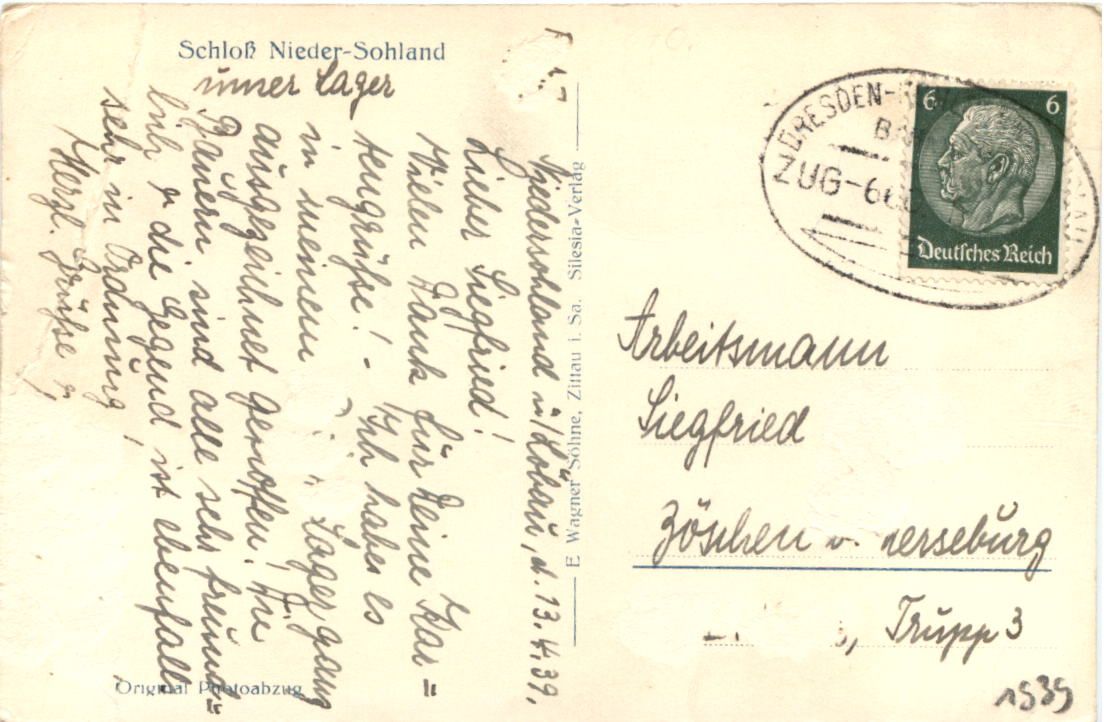 Schloß Nieder-Sohland
unser Lager
Niedersohland ü/Löbau, d. 13.4.39,
Lieber Siegfried!
Vielen Dank für Deine Kar=
tengrüße! - Ich habe es
in meinem Lager ganz
ausgezeichnet getroffen! Die
Bauern sind alle sehr freund=
lich u. die Gegend ist ebenfalls
sehr in Ordnung!
Herzl. Grüße
Original Photoabzug
E. Wagner Söhne, Zittau i. Sa. Silesia-Verlag
DRESDEN-
ZUG-
6 6
Deutsches Reich
Arbeitsmann
Siegfried
Zöschen
Trupp 3
1939